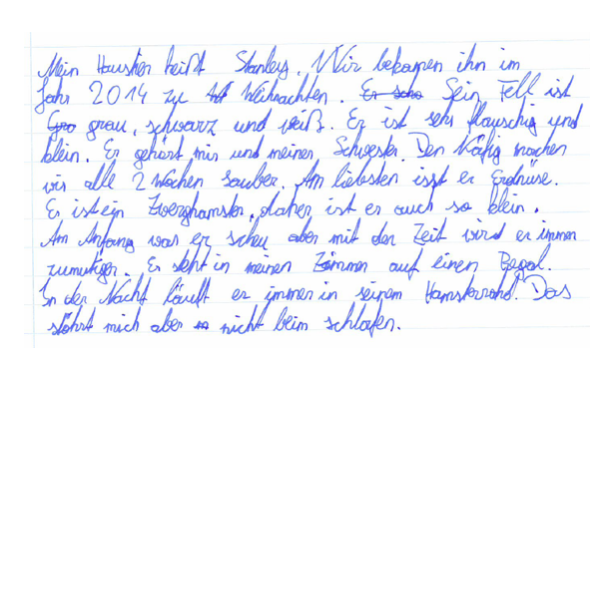 Mein Haustier heißt Stanley. Wir bekamen ihn im
Jahr 2014 zu Weihnachten. Er scho Sein Fell ist
Gro grau, schwarz und weiß. Er ist sehr flauschig und
klein. Er gehört mir und meiner Schwester. Den Käfig machen
wir alle 2 Wochen sauber. Am liebsten isst er Erdnüse.
Er ist ein Zwerghamster, daher ist er auch so klein.
Am Anfang war er scheu aber mit der Zeit wird er immer
zumutiger. Er steht in meinen Zimmer auf einen Regal.
In der Nacht läuft er immer in seinem Hamsterrad. Das
stöhrt mich aber nicht beim schlafen.